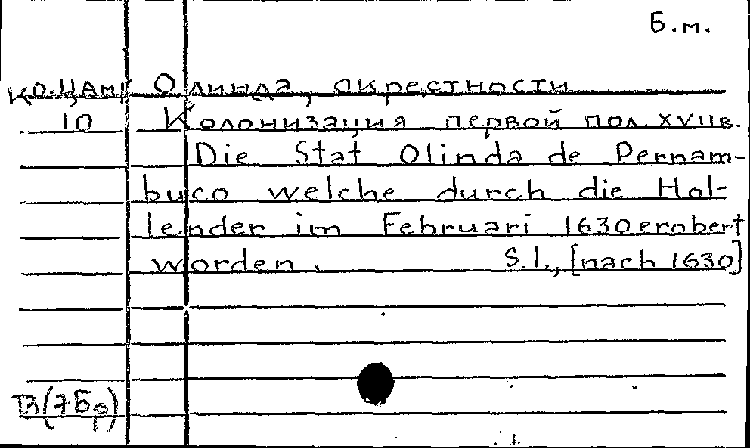 Б.м.
Ко.Цам Олинда, окрестности
10 Колонизация первой пол XVIIв.
Die Stat Olinda de Pernam-
buco welche durch die Hol-
lender im Februari 1630 erobert
worden. S.l., [nach 1630]
В(7Бр)